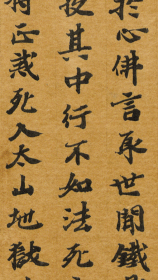 於心佛言承世間鐵
其中行不如法死
正戒死入太山地獄